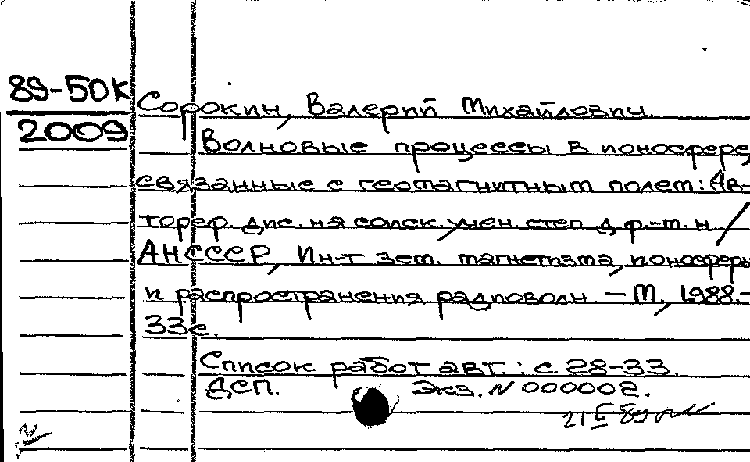 89-50К
2009
Сорокин, Валерий Михайлович
Волновые процессы в ионосфере,
связанные с геомагнитным полем: Ав-
тореф. дис. на соиск. учен. степ. д.ф.-м.н /
АН СССР, Ин-т зем. магнетизма, ионосферы
и распространения радиоволн - М, 1988.-
33с.
Список работ авт.: с. 28-33.
ДСП. Экз. N 000002.